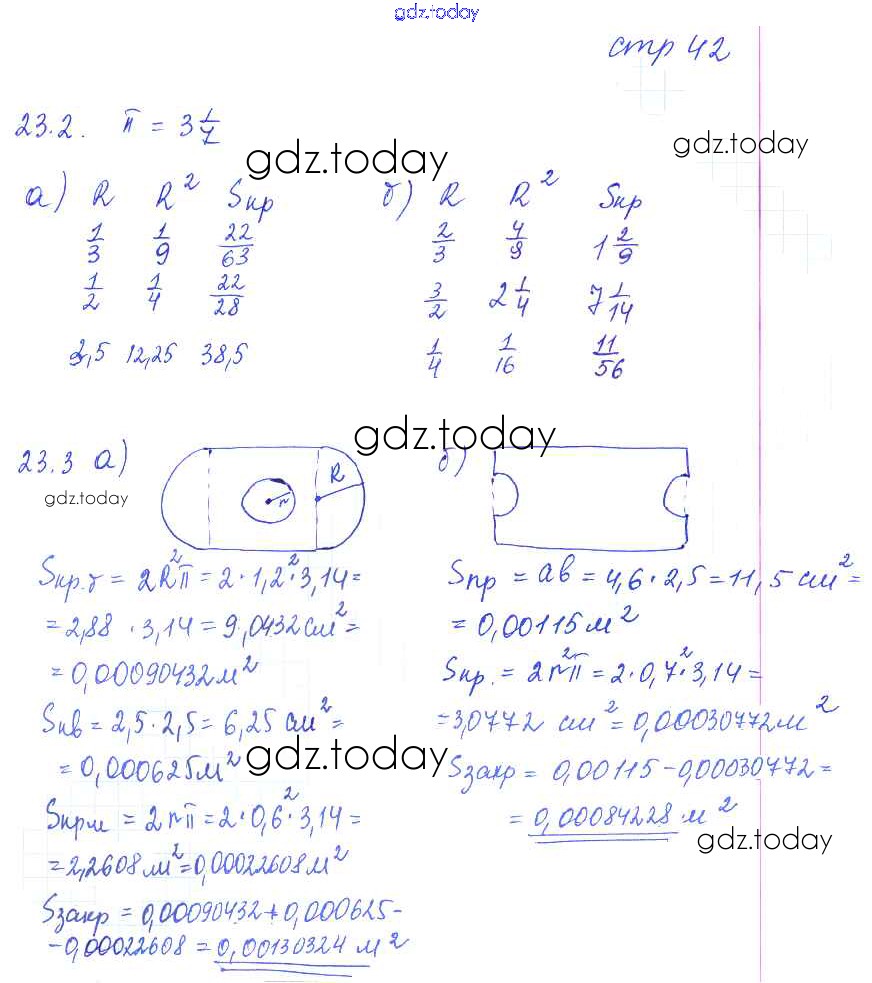 gdz.today
стр 42
23.2. π = 3 1/7
gdz.today
gdz.today
а) R R² Sкр
1/3 1/9 22/63
1/2 1/4 22/28
3,5 12,25 38,5
б) R R² Sкр
2/3 4/9 1 2/9
3/2 2 1/4 7 1/14
1/4 1/16 11/56
gdz.today
23.3 а)
R
r
gdz.today
Sкр.б = 2R²π = 2·1,2²·3,14=
=2,88 · 3,14 = 9,0432 см²=
= 0,00090432 м²
Sкв = 2,5·2,5= 6,25 см²=
= 0,000625 м²
gdz.today
Sкрм = 2rπ = 2·0,6²·3,14=
=2,2608 м²=0,00022608 м²
Sзакр = 0,00090432+0,000625-
-0,00022608 = 0,00130324 м²
б)
Sпр = ab = 4,6·2,5=11,5 см²=
= 0,00115 м²
Sкр. = 2r²π = 2·0,7²·3,14=
=3,0772 см²=0,00030772 м²
Sзакр = 0,00115-0,00030772=
= 0,00084228 м²
gdz.today